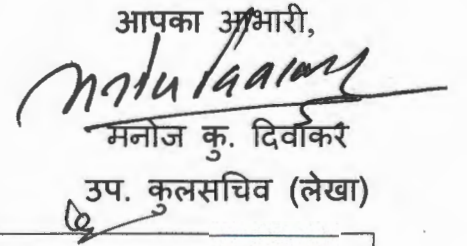 आपका आभारी,
मनोज कु. दिवाकर
उप. कुलसचिव (लेखा)